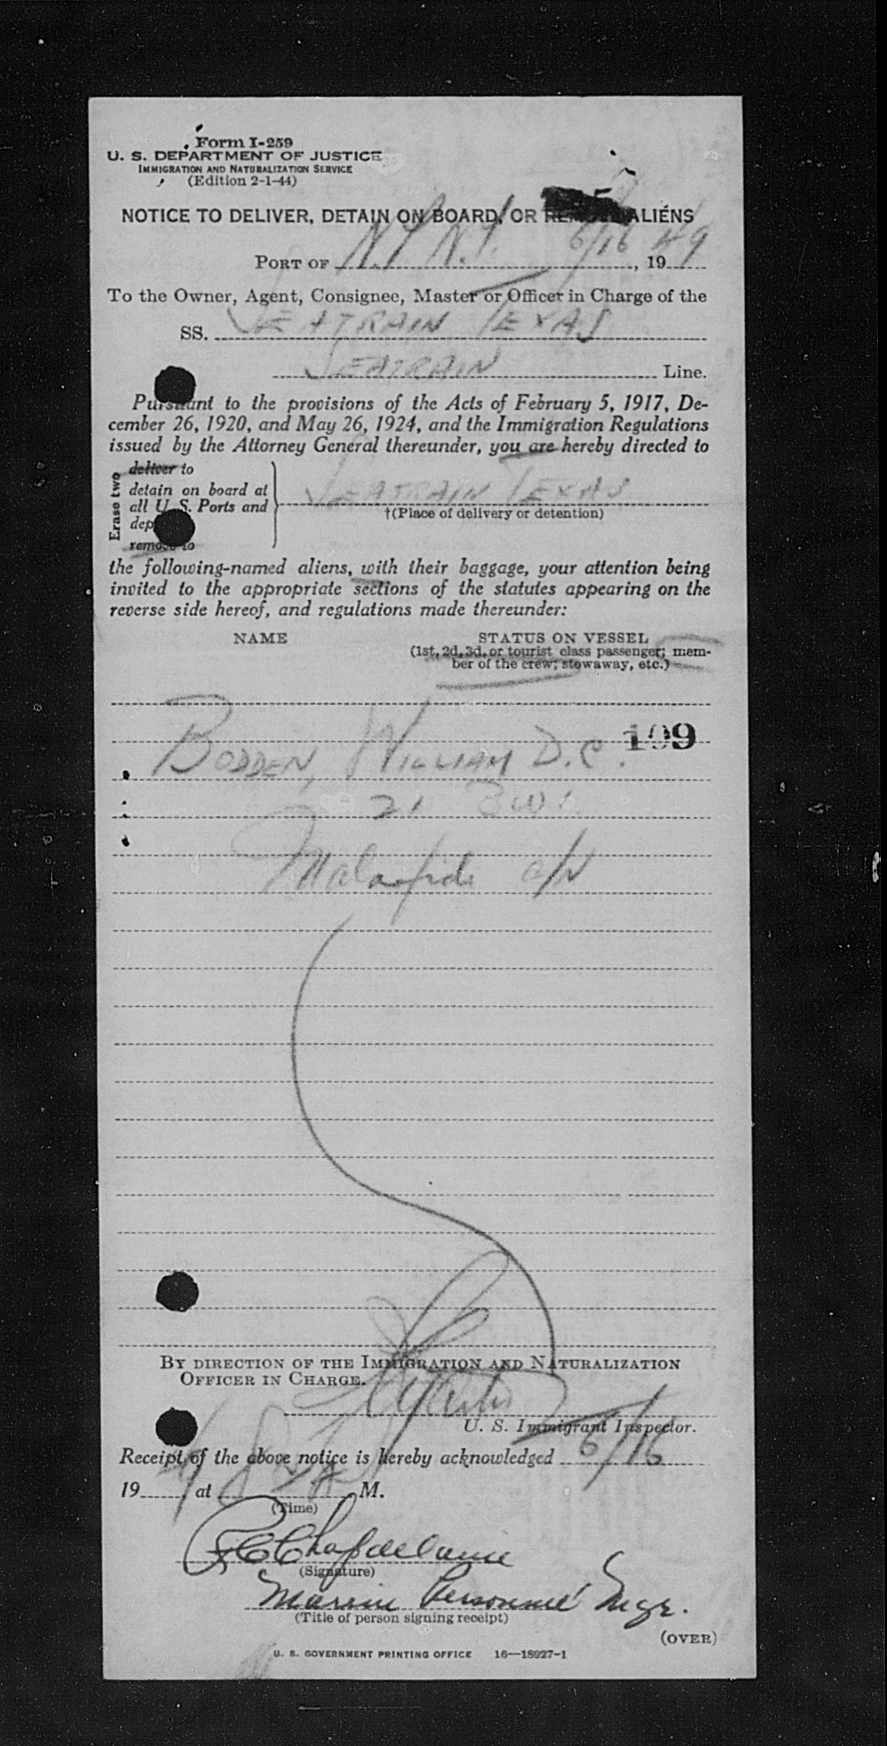 Form I-259
U. S. DEPARTMENT OF JUSTICE
IMMIGRATION AND NATURALIZATION SERVICE
(Edition 2-1-44)
NOTICE TO DELIVER, DETAIN ON BOARD, OR ALIENS
PORT OF N.Y. N.Y. 6/16, 1949
To the Owner, Agent, Consignee, Master or Officer in Charge of the
SS. SEATRAIN TEXAS
SEATRAIN Line.
Pursuant to the provisions of the Acts of February 5, 1917, De-
cember 26, 1920, and May 26, 1924, and the Immigration Regulations
issued by the Attorney General thereunder, you are hereby directed to
Erase two
deliver to
detain on board at
all U. S. Ports and
dep
remove to
SEATRAIN TEXAS
†(Place of delivery or detention)
the following-named aliens, with their baggage, your attention being
invited to the appropriate sections of the statutes appearing on the
reverse side hereof, and regulations made thereunder:
NAME STATUS ON VESSEL
(1st, 2d, 3d, or tourist class passenger; mem-
ber of the crew; stowaway, etc.)
109
BODDEN, WILLIAM D.C.
21 BWI
Malafide
BY DIRECTION OF THE IMMIGRATION AND NATURALIZATION
OFFICER IN CHARGE.
U. S. Immigrant Inspector.
Receipt of the above notice is hereby acknowledged 6/16
19 at M.
(Time)
(Signature)
Marine Personnel Mgr.
(Title of person signing receipt)
(OVER)
U. S. GOVERNMENT PRINTING OFFICE 16—18927-1